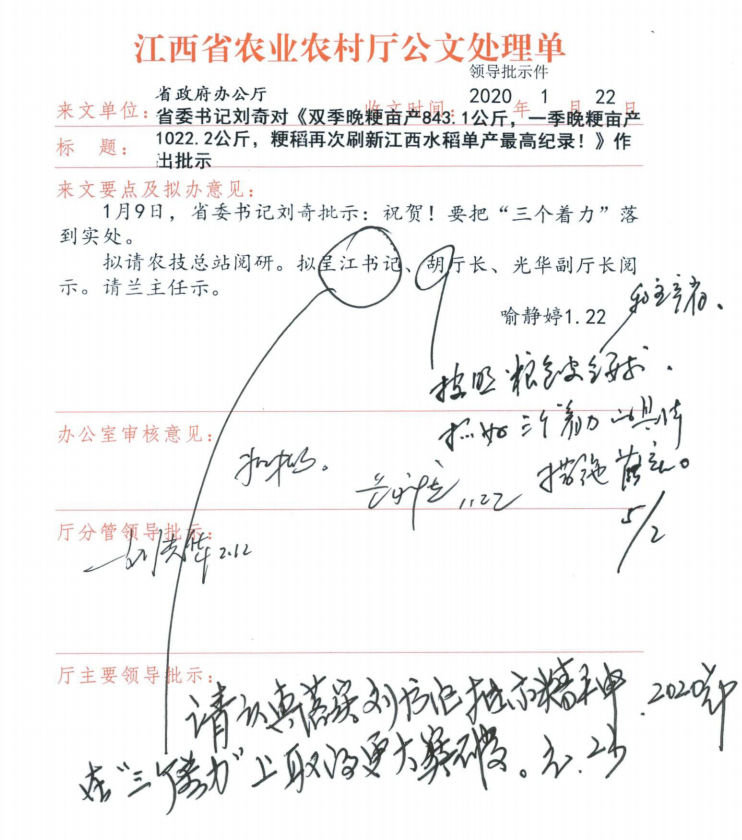 江西省农业农村厅公文处理单
领导批示件
省政府办公厅
来文单位： 收文时间：2020年1月22日
标 题：省委书记刘奇对《双季晚粳亩产843.1公斤，一季晚粳亩产
1022.2公斤，粳稻再次刷新江西水稻单产最高纪录！》作
出批示
来文要点及拟办意见：
1月9日，省委书记刘奇批示：祝贺！要把“三个着力”落
到实处。
拟请农技总站阅研。拟呈江书记、胡厅长、光华副厅长阅
示。请兰主任示。
喻静婷1.22
办公室审核意见：
抓好三个着力
措施 落实。
1.22
5/2
厅分管领导批示：
刘光华 2.12
厅主要领导批示：
请认真落实刘书记批示精神，2020年
在“三个着力”上取得更大突破。